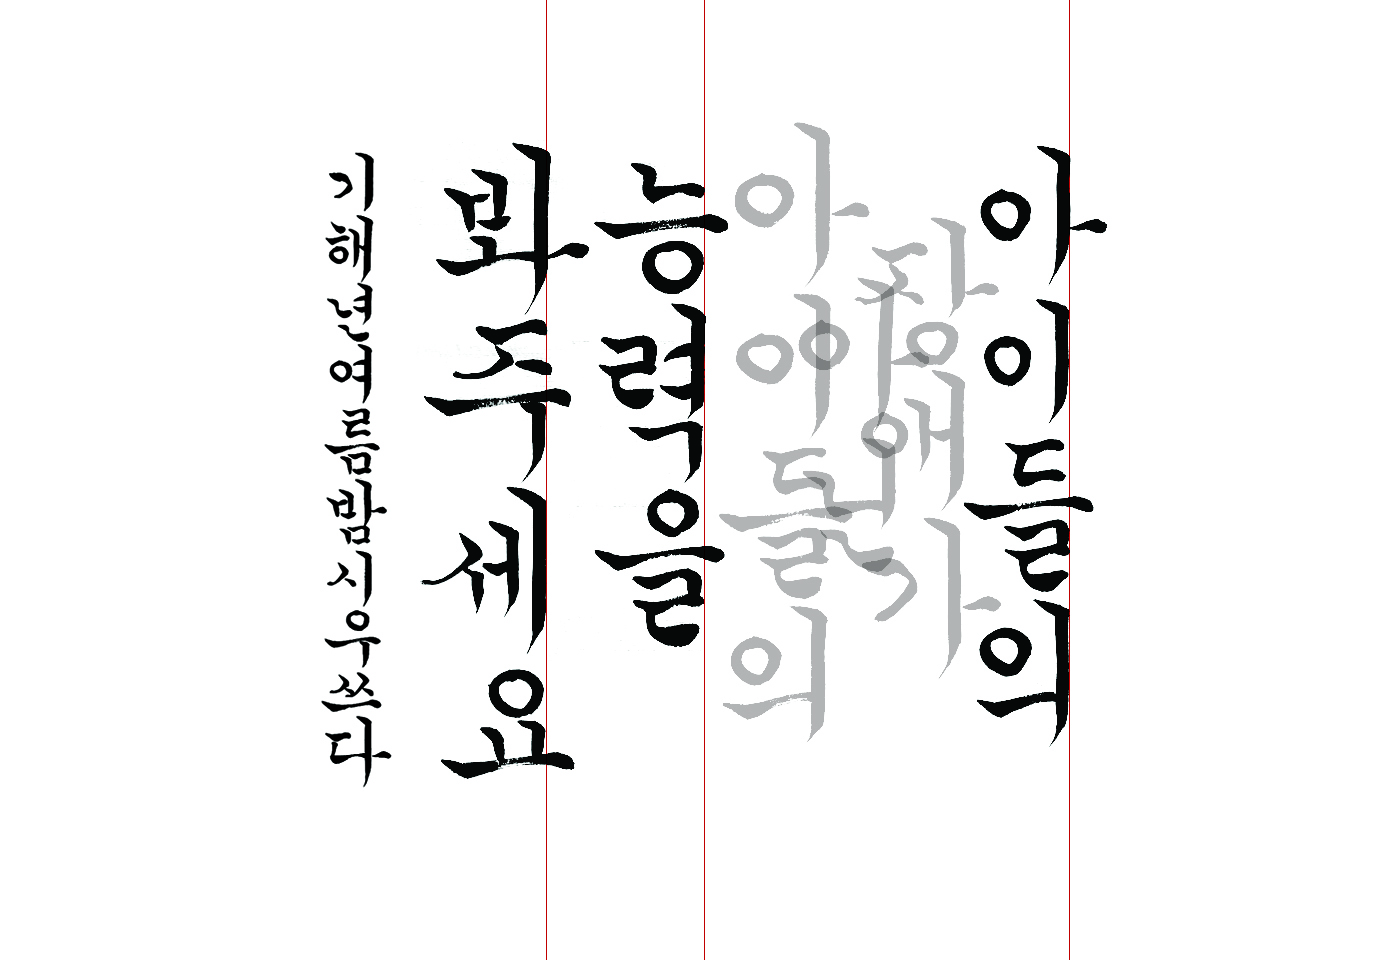 아이들의
장애가
아닌
아이들의
능력을
봐주세요
기해년여름밤시우쓰다